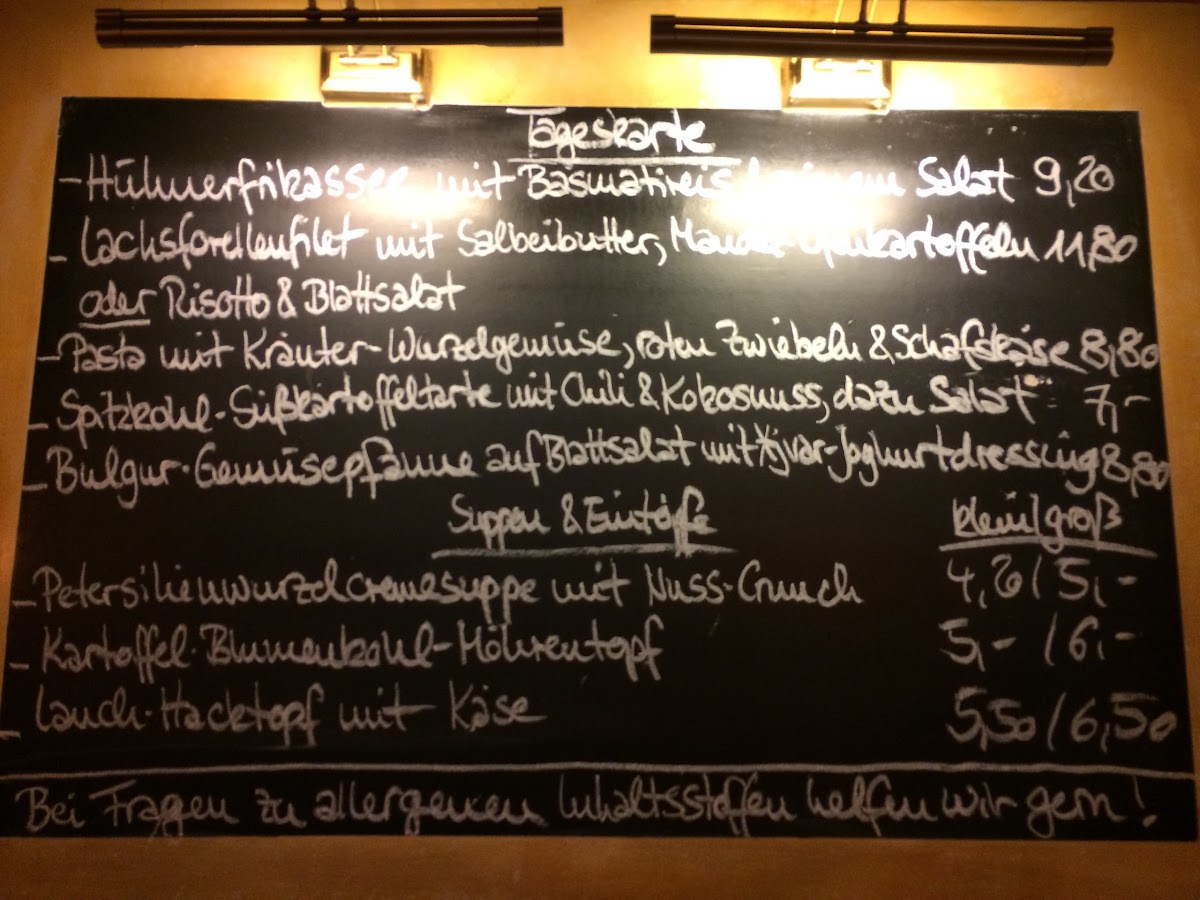 Tageskarte
- Hühnerfrikassee mit Basmatireis & einem Salat 9,20
- Lachsforellenfilet mit Salbeibutter, Ofenkartoffeln 11,80
oder Risotto & Blattsalat
- Pasta mit Kräuter-Wurzelgemüse, roten Zwiebeln & Schafskäse 8,80
- Spitzkohl-Süßkartoffeltarte mit Chili & Kokosnuss, dazu Salat 7,-
- Bulgur-Gemüsepfanne auf Blattsalat mit Ajvar-Joghurtdressing 8,80
Suppen & Eintöpfe klein/groß
- Petersilienwurzelcremesuppe mit Nuss-Crunch 4,20/5,-
- Kartoffel-Blumenkohl-Möhrentopf 5,- /6,-
- Lauch-Hacktopf mit Käse 5,50/6,50
Bei Fragen zu allergenen Inhaltsstoffen helfen wir gern!